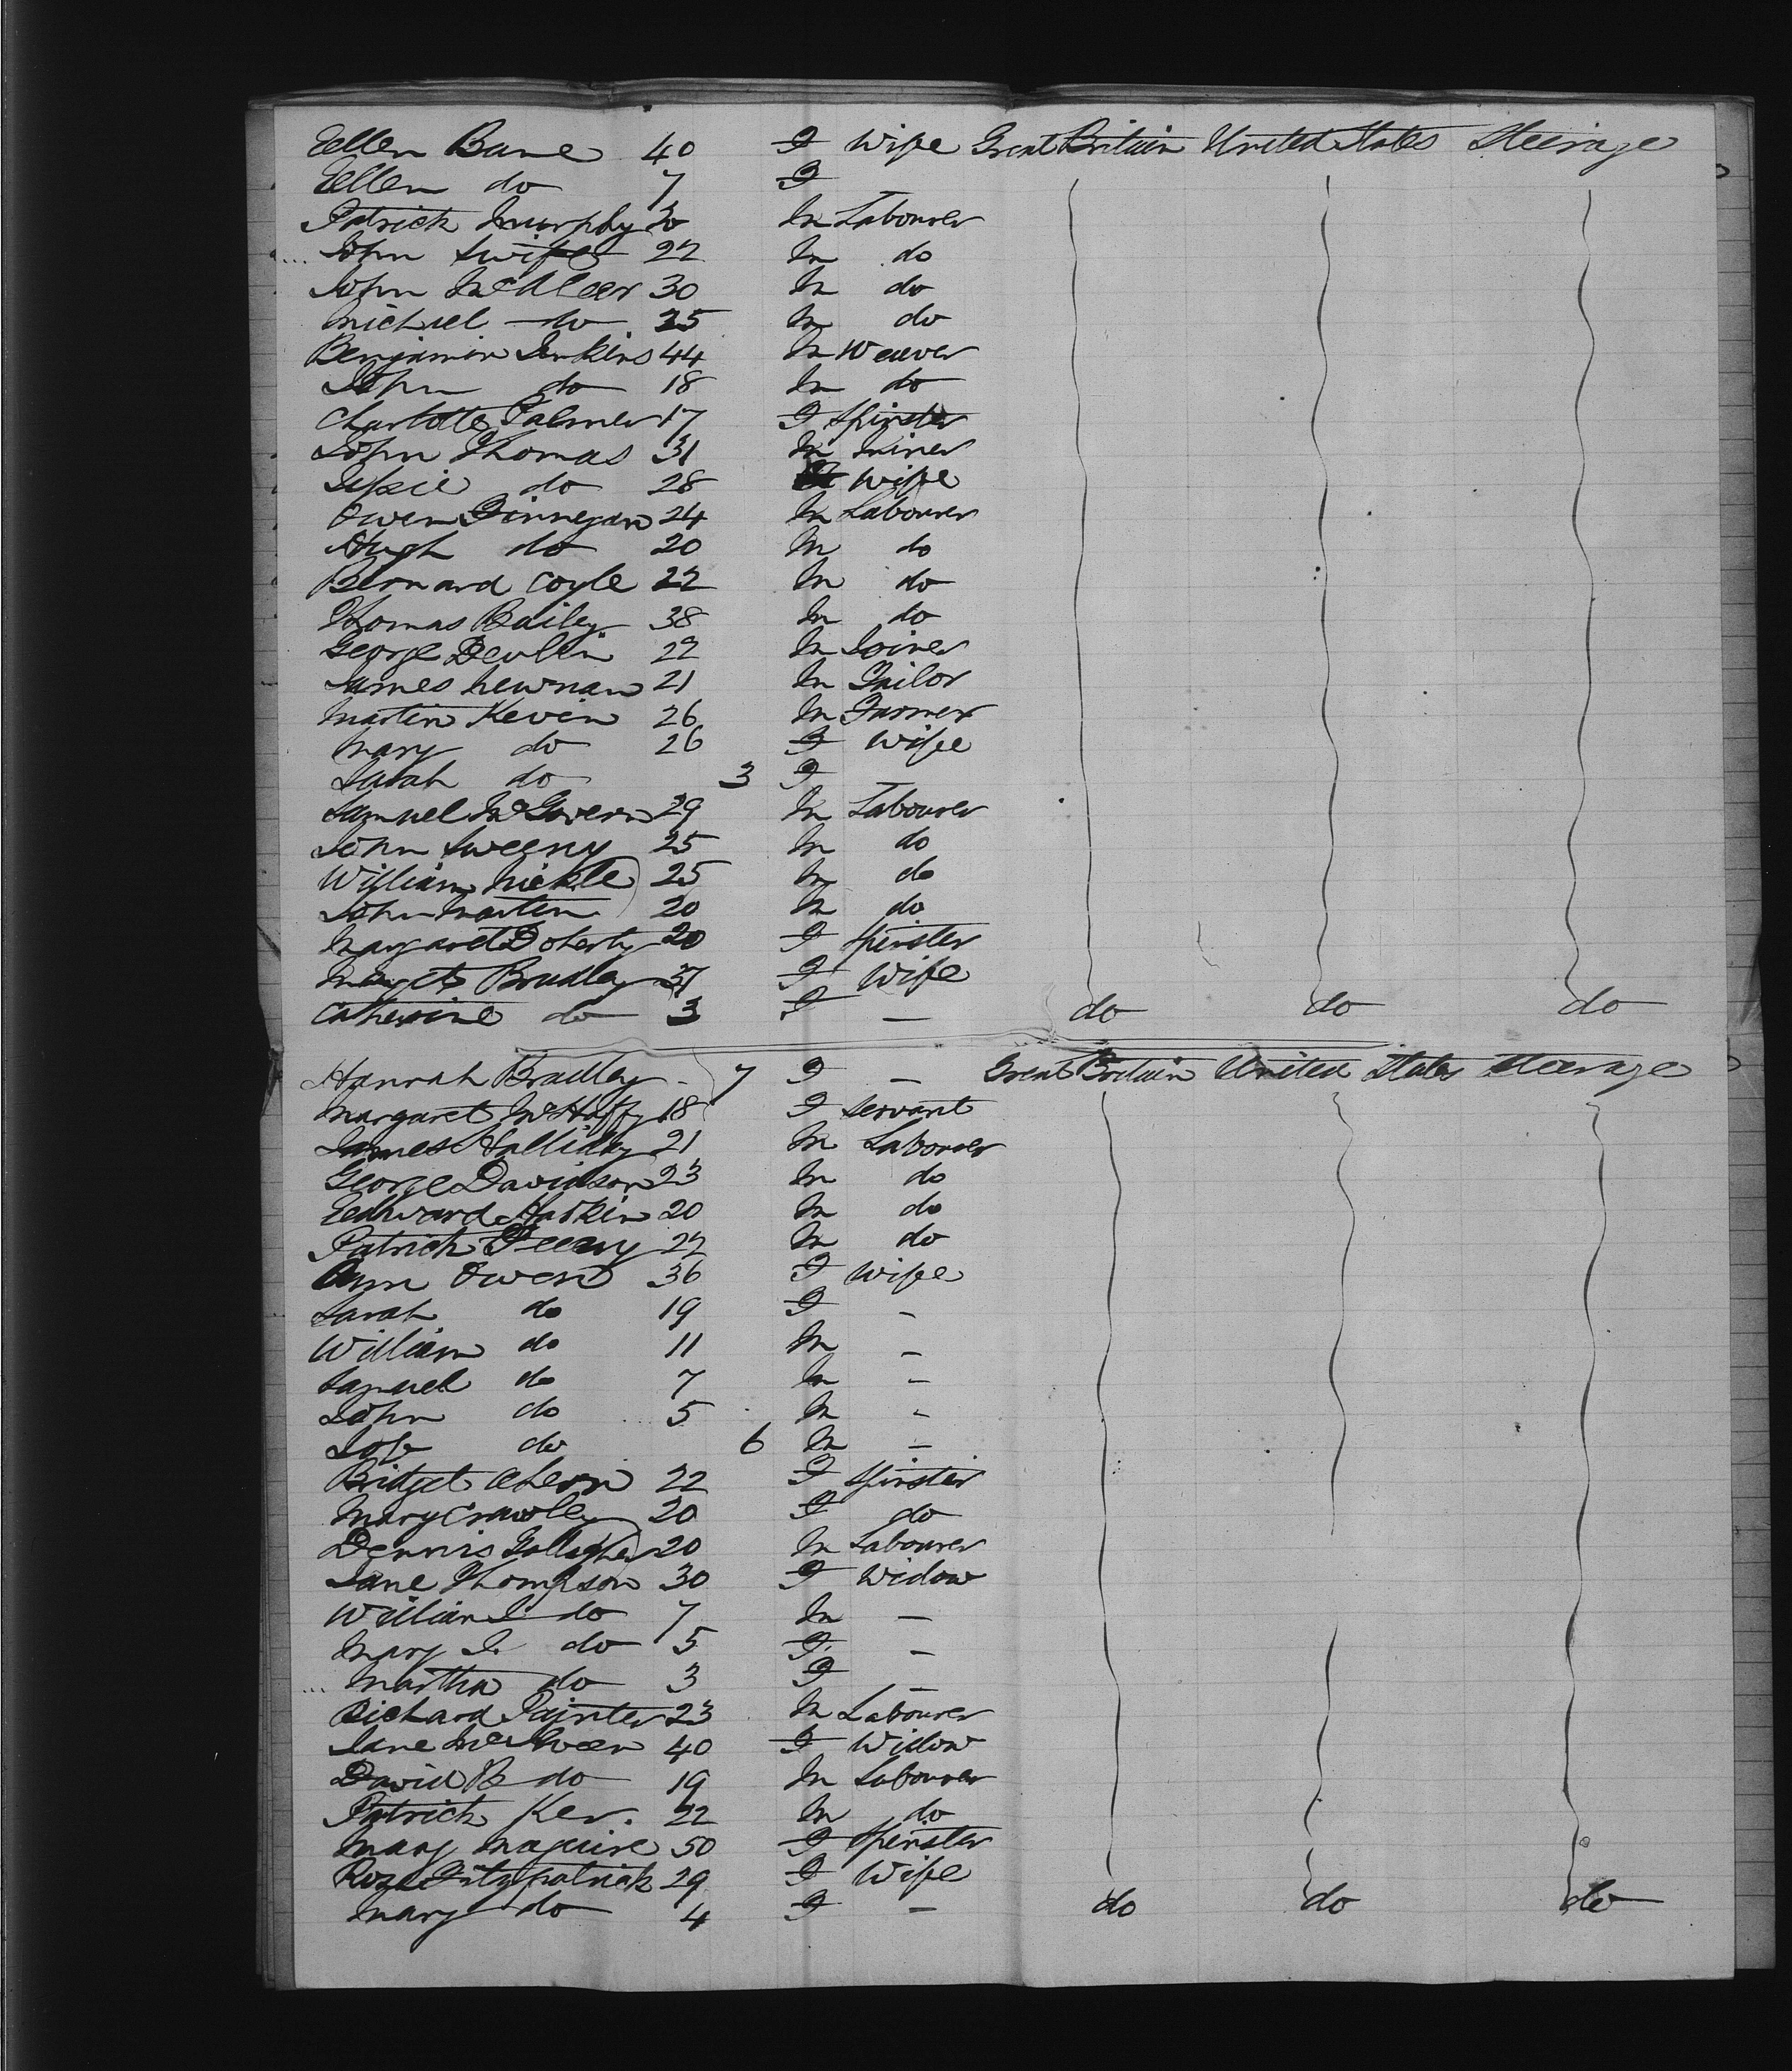 Ellen Bane 40 F Wife Great Britain United States Steerage
Ellen do 7 F
Patrick Murphy 30 M Labourer
John Swift 22 M do
John McAleer 30 M do
Michael do 25 M do
Benjamin Jenkins 44 M Weaver
John do 18 M do
Charlotte Palmer 17 F Spinster
John Thomas 31 M Miner
Jessie do 28 Wife
Owen Finnegan 24 M Labourer
Hugh do 20 M do
Bernard Coyle 22 M do
Thomas Bailey 38 M do
George Devlin 22 M Joiner
James Newman 21 M Tailor
Martin Kevin 26 M Farmer
Mary do 26 F Wife
Sarah do 3 F
Samuel McGovern 29 M Labourer
John Sweeny 25 M do
William Nickle 25 M do
John Martin 20 M do
Margaret Doherty 20 F Spinster
Bradley 37 F Wife
Catherine do 3 F — do do do
Hannah Bradley 7 F — Great Britain United States Steerage
Margaret McHaffy 18 F Servant
James Halliday 21 M Labourer
George Davidson 23 M do
Edward Haskin 20 M do
Patrick Feeny 22 M do
Ann Owen 36 F Wife
Sarah do 19 F -
William do 11 M -
Samuel do 7 M -
John do 5 M -
Job do 6 M -
Bridget Ahern 22 F Spinster
Mary Crawley 20 F do
Dennis Gallagher 20 M Labourer
Jane Thompson 30 F Widow
William J. do 7 M —
Mary J. do 5 F -
Martha do 3 F -
Richard Painter 23 M Labourer
Jane 40 F Widow
David B do 19 M Labourer
Patrick Ker. 22 M do
Mary Maguire 50 F Spinster
Rose Fitzpatrick 29 F Wife
Mary do 4 F - do do do